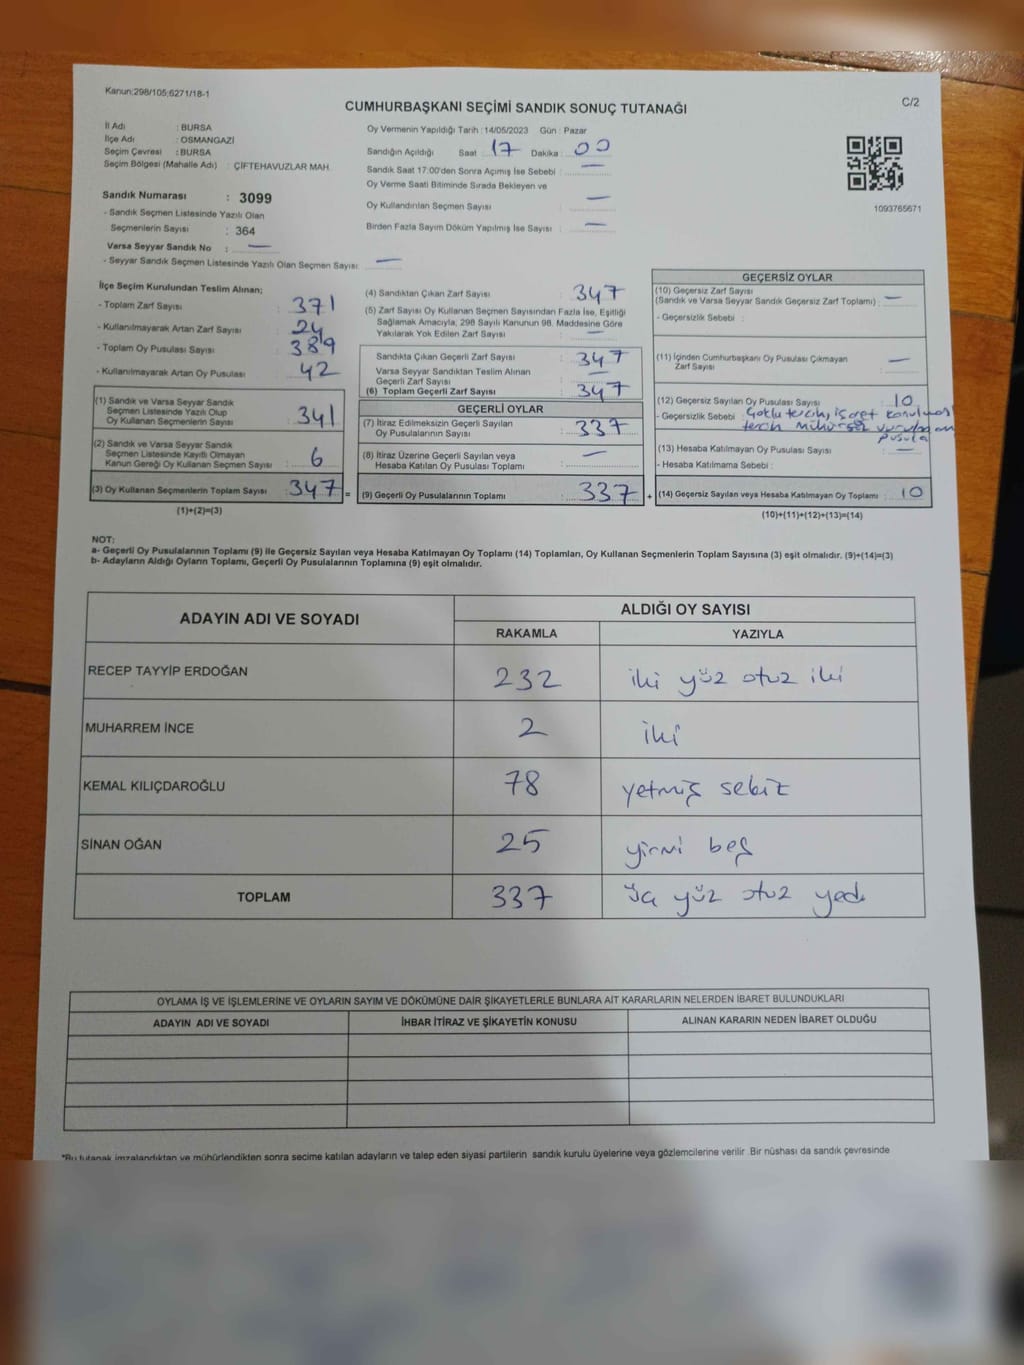 Kanun:298/105;6271/18-1
CUMHURBAŞKANI SEÇİMİ SANDIK SONUÇ TUTANAĞI
C/2
İl Adı : BURSA
İlçe Adı : OSMANGAZİ
Seçim Çevresi : BURSA
Seçim Bölgesi (Mahalle Adı) : ÇİFTEHAVUZLAR MAH.
Sandık Numarası : 3099
- Sandık Seçmen Listesinde Yazılı Olan
Seçmenlerin Sayısı : 364
Varsa Seyyar Sandık No : —
- Seyyar Sandık Seçmen Listesinde Yazılı Olan Seçmen Sayısı: —
Oy Vermenin Yapıldığı Tarih :14/05/2023 Gün : Pazar
Sandığın Açıldığı Saat : 17 Dakika : 00
Sandık Saat 17:00'den Sonra Açımış İse Sebebi : —
Oy Verme Saati Bitiminde Sırada Bekleyen ve
Oy Kullandırılan Seçmen Sayısı : —
Birden Fazla Sayım Döküm Yapılmış İse Sayısı : —
1093765671
İlçe Seçim Kurulundan Teslim Alınan;
- Toplam Zarf Sayısı : 371
- Kullanılmayarak Artan Zarf Sayısı : 24
- Toplam Oy Pusulası Sayısı : 389
- Kullanılmayarak Artan Oy Pusulası : 42
(1) Sandık ve Varsa Seyyar Sandık
Seçmen Listesinde Yazılı Olup
Oy Kullanan Seçmenlerin Sayısı : 341
(2) Sandık ve Varsa Seyyar Sandık
Seçmen Listesinde Kayıtlı Olmayan
Kanun Gereği Oy Kullanan Seçmen Sayısı : 6
(3) Oy Kullanan Seçmenlerin Toplam Sayısı : 347 =
(1)+(2)=(3)
(4) Sandıktan Çıkan Zarf Sayısı : 347
(5) Zarf Sayısı Oy Kullanan Seçmen Sayısından Fazla İse, Eşitliği
Sağlamak Amacıyla; 298 Sayılı Kanunun 98. Maddesine Göre
Yakılarak Yok Edilen Zarf Sayısı : —
Sandıkta Çıkan Geçerli Zarf Sayısı : 347
Varsa Seyyar Sandıktan Teslim Alınan
Geçerli Zarf Sayısı : —
(6) Toplam Geçerli Zarf Sayısı : 347
GEÇERLİ OYLAR
(7) İtiraz Edilmeksizin Geçerli Sayılan
Oy Pusulalarının Sayısı : 337
(8) İtiraz Üzerine Geçerli Sayılan veya
Hesaba Katılan Oy Pusulası Toplamı : —
(9) Geçerli Oy Pusulalarının Toplamı : 337 +
GEÇERSİZ OYLAR
(10) Geçersiz Zarf Sayısı
(Sandık ve Varsa Seyyar Sandık Geçersiz Zarf Toplamı) : —
- Geçersizlik Sebebi :
(11) İçinden Cumhurbaşkanı Oy Pusulası Çıkmayan
Zarf Sayısı : —
(12) Geçersiz Sayılan Oy Pusulası Sayısı : 10
- Geçersizlik Sebebi : Çoklu tercih, işaret konulmuş
tercih mühürsüz vurulan
pusula
(13) Hesaba Katılmayan Oy Pusulası Sayısı : —
- Hesaba Katılmama Sebebi :
(14) Geçersiz Sayılan veya Hesaba Katılmayan Oy Toplamı : 10
(10)+(11)+(12)+(13)=(14)
NOT:
a- Geçerli Oy Pusulalarının Toplamı (9) ile Geçersiz Sayılan veya Hesaba Katılmayan Oy Toplamı (14) Toplamları, Oy Kullanan Seçmenlerin Toplam Sayısına (3) eşit olmalıdır. (9)+(14)=(3)
b- Adayların Aldığı Oyların Toplamı, Geçerli Oy Pusulalarının Toplamına (9) eşit olmalıdır.
ADAYIN ADI VE SOYADI
ALDIĞI OY SAYISI
RAKAMLA YAZIYLA
RECEP TAYYİP ERDOĞAN 232 iki yüz otuz iki
MUHARREM İNCE 2 iki
KEMAL KILIÇDAROĞLU 78 yetmiş sekiz
SİNAN OĞAN 25 yirmi beş
TOPLAM 337 üç yüz otuz yedi
OYLAMA İŞ VE İŞLEMLERİNE VE OYLARIN SAYIM VE DÖKÜMÜNE DAİR ŞİKAYETLERLE BUNLARA AİT KARARLARIN NELERDEN İBARET BULUNDUKLARI
ADAYIN ADI VE SOYADI İHBAR İTİRAZ VE ŞİKAYETİN KONUSU ALINAN KARARIN NEDEN İBARET OLDUĞU
*Bu tutanak imzalandıktan ve mühürlendikten sonra seçime katılan adayların ve talep eden siyasi partilerin sandık kurulu üyelerine veya gözlemcilerine verilir. Bir nüshası da sandık çevresinde